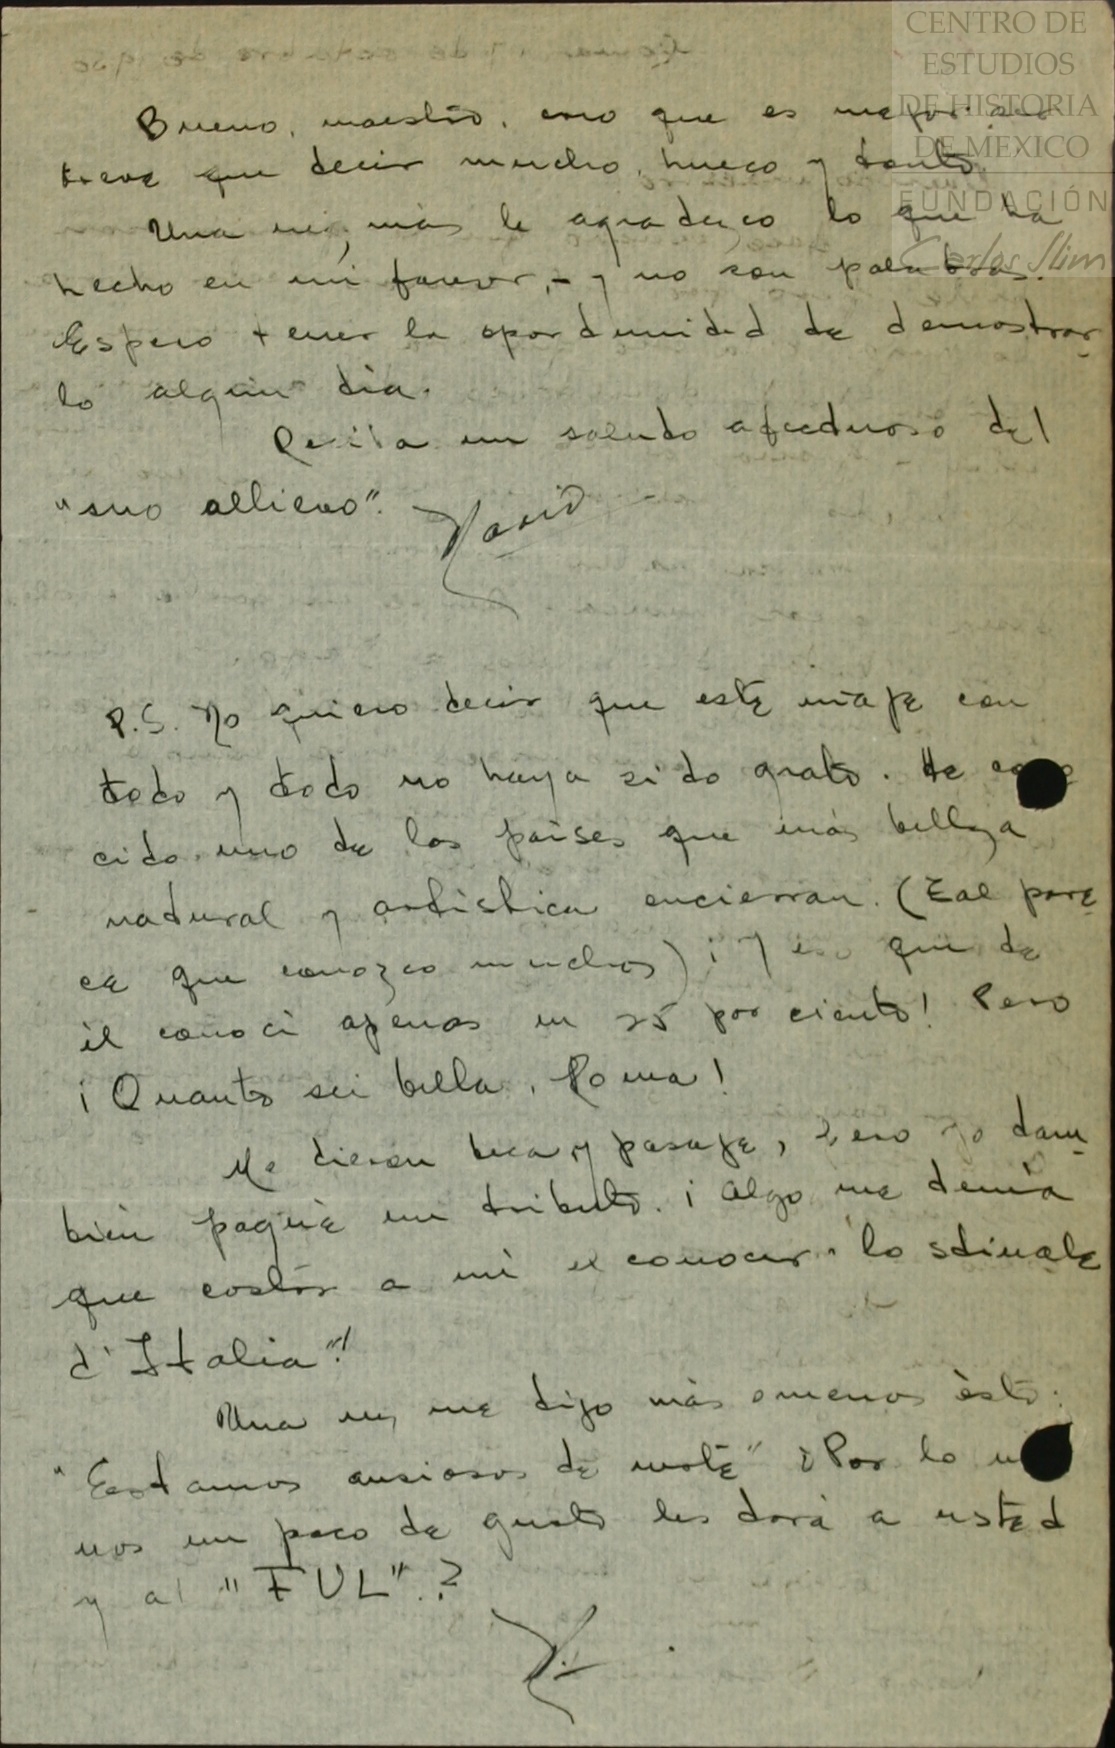 CENTRO DE
ESTUDIOS
DE HISTORIA
DE MÉXICO
FUNDACIÓN
Carlos Slim
Bueno, maestro, creo que es mejor ser
breve que decir mucho, hueco y tonto.
Una vez más le agradezco lo que ha
hecho en mi favor, - y no son palabras.
Espero tener la oportunidad de demostrar
lo algún día.
Reciba un saludo afectuoso del
"suo allievo". David
P.S. No quiero decir que este viaje con
todo y todo no haya sido grato. He
cido uno de los países que más belleza
natural y artística encierran. (Tal pare
ce que conozco muchos) ¡Y eso que de
él conocí apenas un 25 por ciento! Pero
¡Quanto sei bella, Roma!
Me dieron beca y pasaje, pero yo tam
bién pagué un tributo. ¡Algo me tenía
que costar a mí el conocer "lo stivale
d'Italia"!
Una vez me dijo más o menos ésto:
"Estamos ansiosos de verte" ¿Por lo
nos un poco de gusto les dará a usted
y al "FUL".?
D.